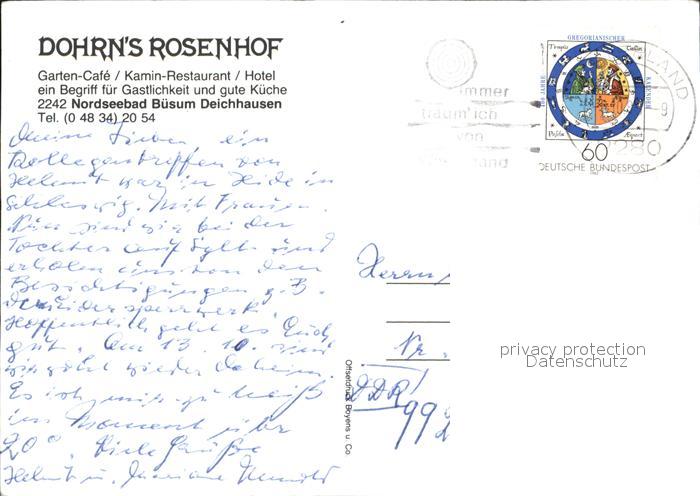 DOHRN'S ROSENHOF
Garten-Café / Kamin-Restaurant / Hotel
ein Begriff für Gastlichkeit und gute Küche
2242 Nordseebad Büsum Deichhausen
Tel. (0 48 34) 20 54
Meine Lieben, ein
Kollegentreffen von
Helmut war in Heide in
Schleswig. Mit Frauen.
Nun sind wir bei der
Tochter auf Sylt und
erholen uns von den
Besichtigungen z.B.
Eidersperrwerk.
Hoffentlich geht es Euch
gut. Am 13. 10. sind
wir wieder daheim.
Es ist mir zu heiß
im Moment über
20° Viele Grüße
Helmut u. Mariane
Offsetdruck Boyens u. Co
GREGORIANISCHER
400 JAHRE
KALENDER
60
DEUTSCHE BUNDESPOST
1982
immer
träum' ich
von
LAND
9
2280
Herrn
Nr.
DDR
99
privacy protection
Datenschutz